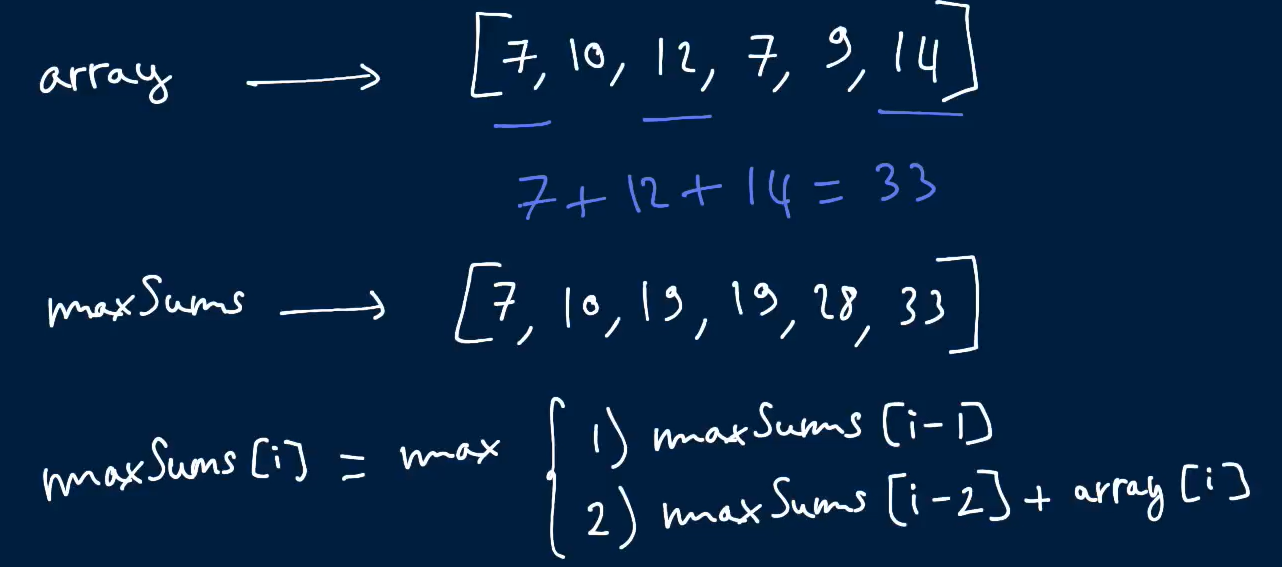 array → [7, 10, 12, 7, 9, 14]
7 + 12 + 14 = 33
maxSums → [7, 10, 19, 19, 28, 33]
maxSums [i] = max { 1) maxSums [i-1]
2) maxSums [i-2] + array [i]